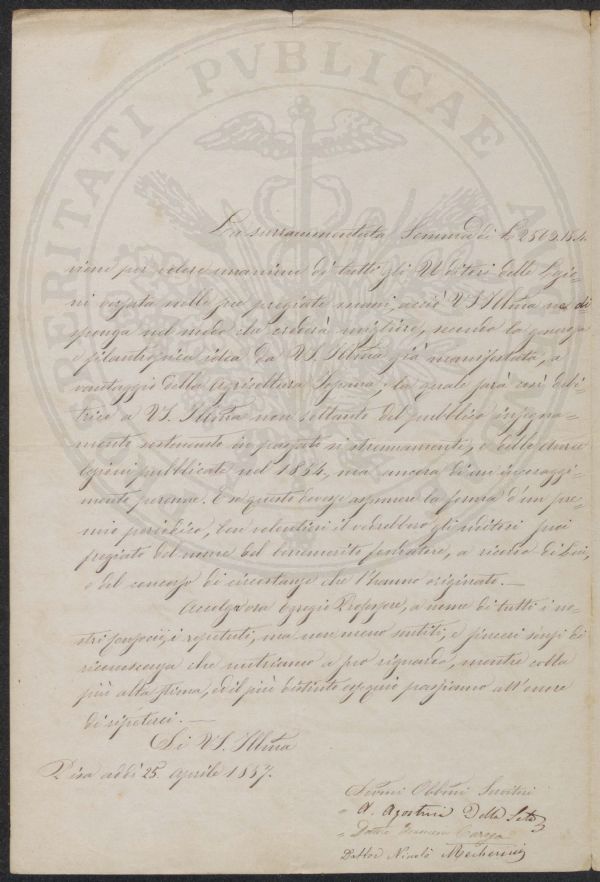 PERITATI PVBLICAE
La surrammentata Somma di L 2569.18.4
viene per volere unanime di tutti gli Uditori delle Lezio-
ni versata nelle sue pregiate mani, acciò VS. Illma ne di-
sponga nel modo che crederà, secondo la generosa
e filantropica idea da VS. Illma già manifestata, a
vantaggio della Agricoltura la quale sarà così debi-
trice a VS. Illma non soltanto del pubblico insegna-
mento sostenuto in passato sì strenuamente, e delle
Lezioni pubblicate nel 1854, ma ancora di un incoraggi-
mento perenne. E se questo dovesse assumere la forma d'un pre-
mio periodico, ben volentieri il vedrebbero gli uditori suoi
fregiato del nome del benemerito fondatore, a ricordo di Lui,
e del concorso di circostanze che l'hanno originato. —
Accolga ora Egregio Professore, a nome di tutti i no-
stri i ripetuti, ma non meno sentiti, e sinceri sensi di
riconoscenza che nutriamo a suo riguardo, mentre colla
più alta stima, ed il più distinto ossequio passiamo all'onore
di ripeterci. —
Di VS. Illma
Pisa addì 25. Aprile 1857.
Devmi Obbmi Servitori
A. Agostini Della Seta
Dottor Carega
Dottor Nicolò